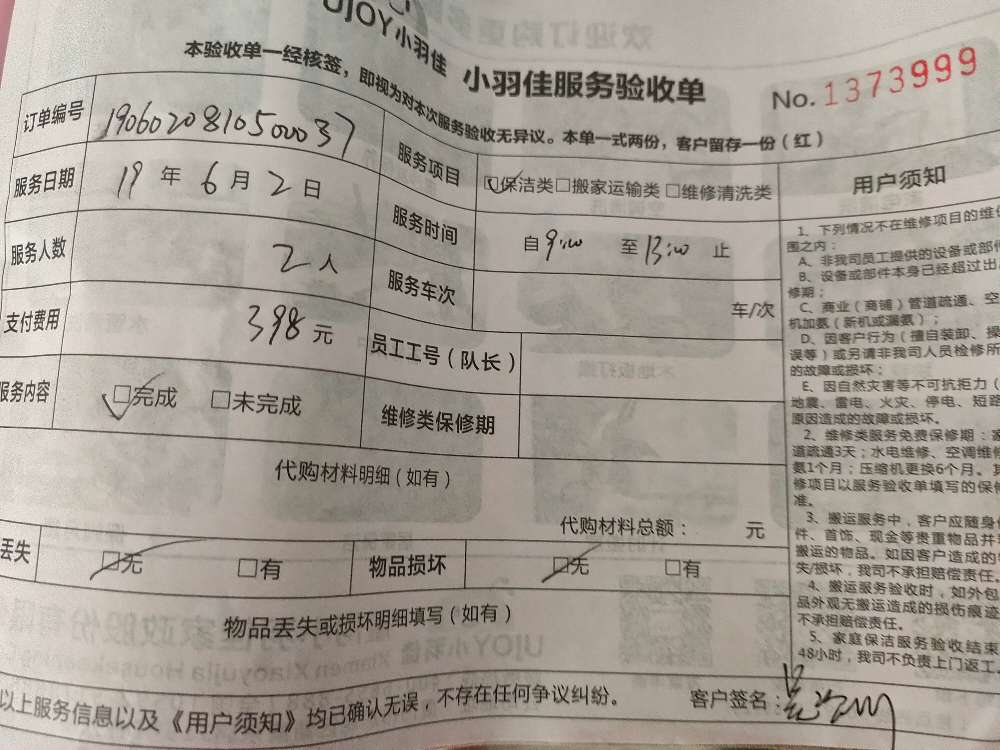 UJOY小羽佳 小羽佳服务验收单 No. 1373999
本验收单一经核签，即视为对本次服务验收无异议。本单一式两份，客户留存一份（红）
订单编号 190602081050037
服务项目 保洁类 搬家运输类 维修清洗类
服务日期 19 年 6 月 2 日
服务时间 自 9:00 至 13:00 止
服务人数 2 人
服务车次 车/次
支付费用 398 元
员工工号（队长）
服务内容 完成 未完成
维修类保修期
代购材料明细（如有）
代购材料总额： 元
丢失 无 有
物品损坏 无 有
物品丢失或损坏明细填写（如有）
以上服务信息以及《用户须知》均已确认无误，不存在任何争议纠纷。
客户签名：
用户须知
1、下列情况不在维修项目的维
围之内：
A、非我司员工提供的设备或部件
B、设备或部件本身已经超过出
修期；
C、商业（商铺）管道疏通、空
机加氨（新机或漏氨）；
D、因客户行为（擅自装卸、操
误等）或另请非我司人员检修所
的故障或损坏；
E、因自然灾害等不可抗拒力（
地震、雷电、火灾、停电、短路
原因造成的故障或损坏。
2、维修类服务免费保修期：
道疏通3天；水电维修、空调维修
氨1个月；压缩机更换6个月。其
修项目以服务验收单填写的保修
准。
3、搬运服务中，客户应随身
件、首饰、现金等贵重物品并
搬运的物品。如因客户造成的
失/损坏，我司不承担赔偿责任。
4、搬运服务验收时，如外包
品外观无搬运造成的损伤痕迹
不承担赔偿责任。
5、家庭保洁服务验收结束
48小时，我司不负责上门返工